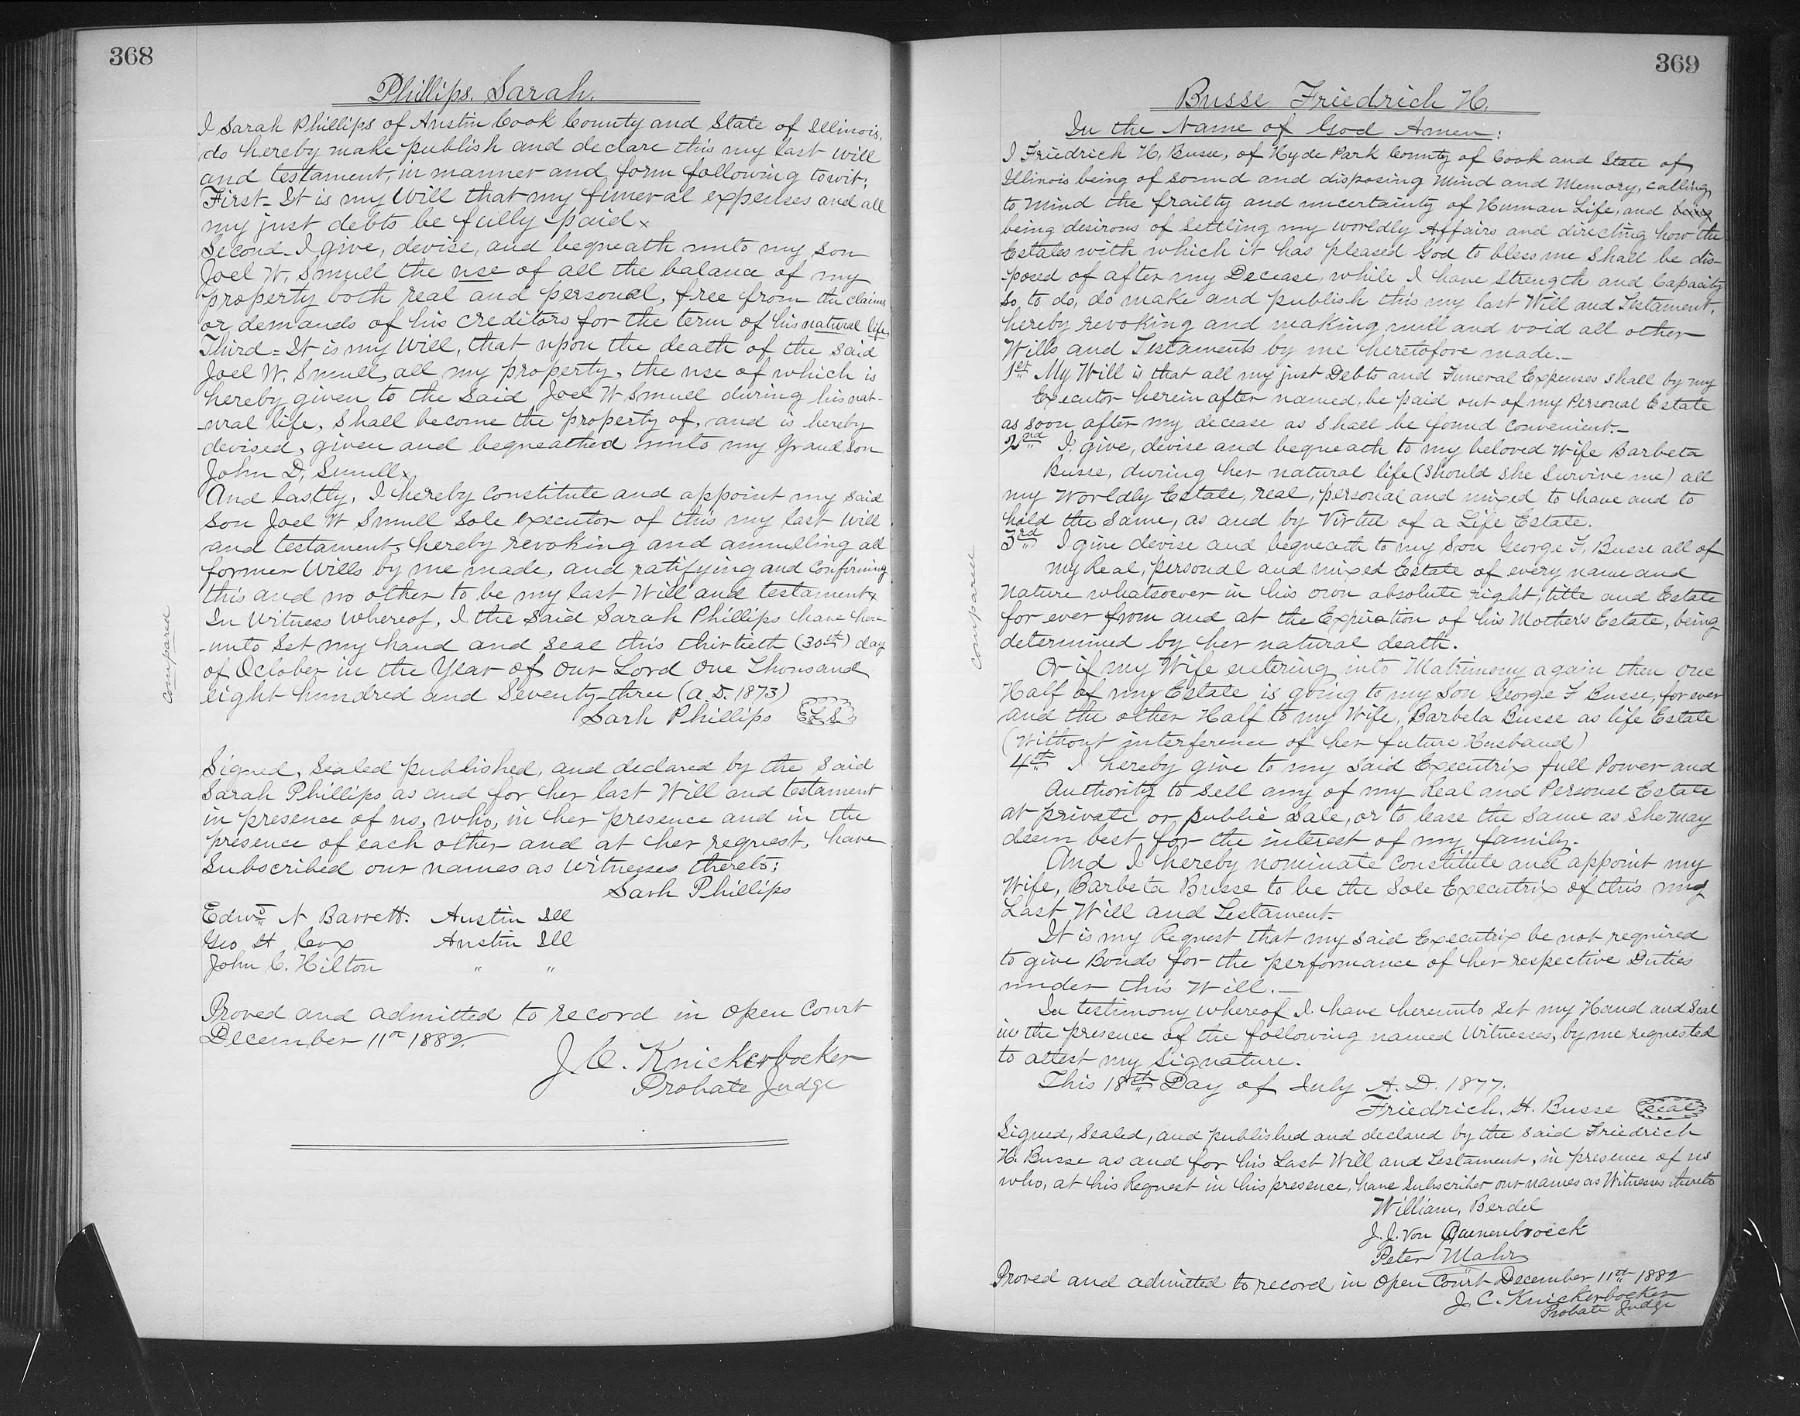 368
Phillips, Sarah.
I Sarah Phillips of Austin Cook County and State of Illinois,
do hereby make publish and declare this my last will
and testament, in manner and form following towit;
First = It is my Will that my funeral expenses and all
my just debts be fully paid x
Second - I give, devise, and bequeath unto my son
Joel W. Smull the use of all the balance of my
property both real and personal, free from the claims
or demands of his creditors for the term of his natural life,
Third = It is my Will, that upon the death of the said
Joel W. Smull, all my property, the use of which is
hereby given to the said Joel W Smull during his nat-
-ural life, shall become the property of, and is hereby
devised, given and bequeathed unto my Grand son
John D. Smull x
And lastly, I hereby constitute and appoint my said
son Joel W Smull sole executor of this my last will
and testament, hereby revoking and annulling all
former Wills by me made, and ratifying and Confirming
this and no other to be my last Will and testament x
In Witness whereof, I the said Sarah Phillips have here-
-unto set my hand and seal this thirtieth (30th) day
of October in the Year of Our Lord One Thousand
eight hundred and Seventy three (A.D. 1873)
Sarh Phillips L.S.
compared
Signed, Sealed published, and declared by the said
Sarah Phillips as and for her last Will and testament
in presence of us, who, in her presence and in the
presence of each other and at her request, have
Subscribed our names as witnesses thereto;
Sarh Phillips
Edwd N Barrett. Austin Ill
Geo H Cox Austin Ill
John C. Hilton " "
Proved and admitted to record in open Court
December 11th 1882.
J. C. Knickerbocker
Probate Judge
369
Busse Friedrich H.
In the Name of God Amen:
I Friedrich H. Busse, of Hyde Park County of Cook and State of
Illinois being of sound and disposing Mind and Memory, calling
to Mind the frailty and uncertainty of Human Life, and being
being desirous of settling my worldly Affairs and directing how the
Estates with which it has pleased God to bless me shall be dis-
-posed of after my Decease, while I have strength and Capacity
so, to do, do make and publish this my last Will and Testament,
hereby revoking and making null and void all other
Wills and Testaments by me heretofore made. -
1st My Will is that all my just Debts and Funeral Expenses shall by my
Executor herein after named, be paid out of my Personal Estate
as soon after my decease as shall be found convenient. -
2nd I give, devise and bequeath to my beloved Wife Barbeta
Busse, during her natural life (should she survive me) all
my Worldly Estate, real, personal and mixed to have and to
hold the same, as and by Virtue of a Life Estate.
3rd I give devise and bequeath to my Son George F. Busse all of
my Real, personal and mixed Estate of every name and
nature whatsoever in his own absolute right, title and Estate
for ever from and at the Expiration of his Mother's Estate, being
determined by her natural death.
Or if my Wife entering into Matrimony again then one
Half of my Estate is going to my Son George F Busse, for ever
and the other Half to my Wife, Barbeta Busse as life Estate
(Without interference of her future Husband)
4th I hereby give to my said Executrix full Power and
Authority to sell any of my Real and Personal Estate
at private or public Sale, or to lease the same as she may
deem best for the interest of my family.
And I hereby nominate constitute and appoint my
Wife, Barbeta Busse to be the Sole Executrix of this my
Last Will and Testament
It is my Request that my said Executrix be not required
to give Bonds for the performance of her respective Duties
under this Will. -
In testimony whereof I have hereunto set my Hand and Seal
in the presence of the following named Witnesses, by me requested
to attest my Signature.
This 18th Day of July A. D. 1877.
Friedrich. H. Busse Seal
compared
Signed, Sealed, and published and declared by the said Friedrich
H. Busse as and for his Last Will and Testament, in presence of us
who, at his Request in his presence, have Subscribed our names as Witnesses thereto
William, Berdel
J. J. Von
Peter Mahr
Proved and admitted to record in open Court December 11th 1882
J. C. Knickerbocker
Probate Judge